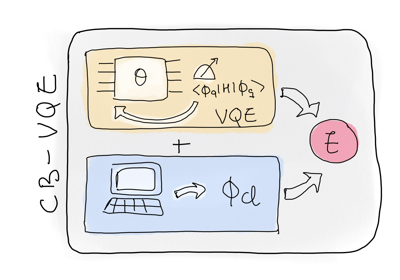 CB-VQE
θ
<ϕq|H|ϕq>
VQE
+
ϕcl
E